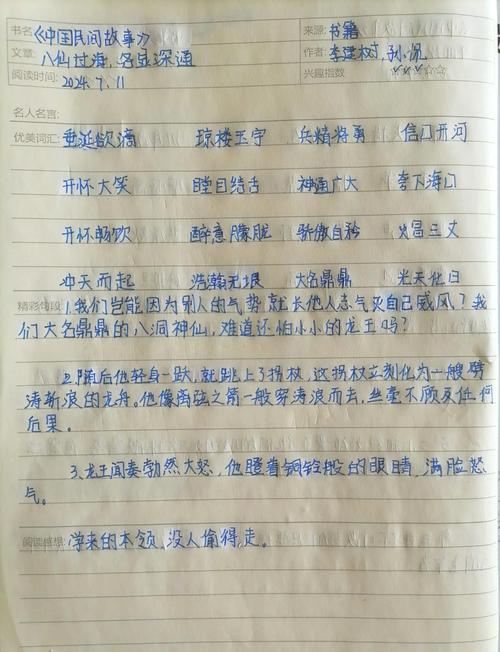 书名《中国民间故事》 来源:书籍
文章:八仙过海,各显深通 作者:李建树,孙侃
阅读时间:2024.7.11 兴趣指数 ☆☆☆☆☆
名人名言:
优美词汇:垂涎欲滴 琼楼玉宇 兵精将勇 信口开河
开怀大笑 瞠目结舌 神通广大 夸下海口
开怀畅饮 醉意朦胧 骄傲自矜 火冒三丈
冲天而起 浩瀚无垠 大名鼎鼎 光天化日
精彩句段:1.我们岂能因为别人的气势就长他人志气灭自己威风?我
们大名鼎鼎的八洞神仙,难道还怕小小的龙王吗?
2.随后他轻身一跃,就跳上了拐杖,这拐杖立刻化为一艘劈
涛斩浪的龙舟。他像离弦之箭一般穿涛浪而去,丝毫不顾及任何
后果。
3.龙王闻奏勃然大怒,他瞪着铜铃般的眼睛,满脸怒
气。
阅读感想:学来的本领,没人偷得走。